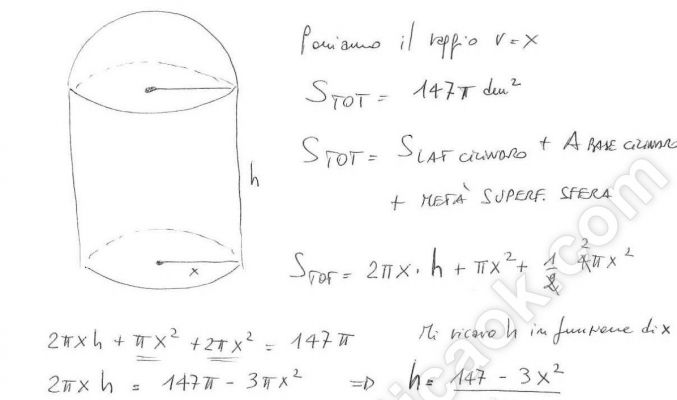 Poniamo il raggio r = x
S TOT = 147π dm²
S TOT = S LAT CILINDRO + A BASE CILINDRO
+ METÀ SUPERF. SFERA
h
x
S TOT = 2πx · h + πx² + 1/2 4 2 πx²
2πxh + πx² + 2πx² = 147π
Mi ricavo h in funzione di x
2πxh = 147π - 3πx² => h = 147 - 3x²
icaok.com